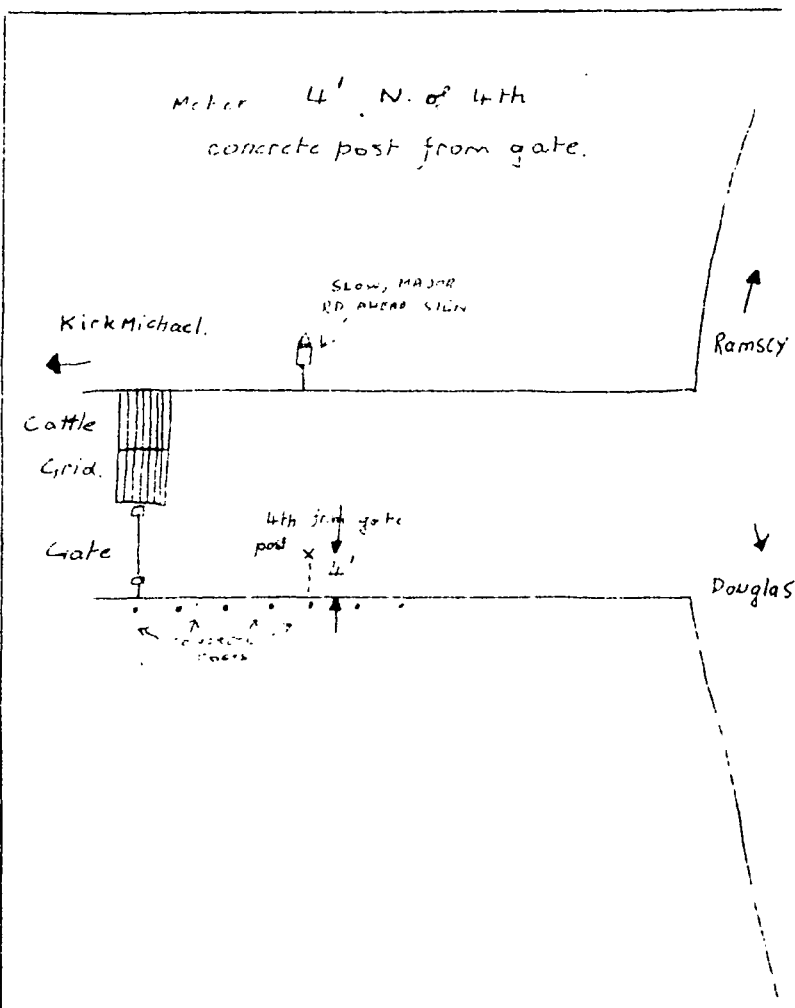 Meter 4' N. of 4th
concrete post from gate.
SLOW, MAJOR
RD AHEAD SIGN
KirkMichael.
Ramsey
Cattle
Grid.
4th from gate
post x
4'
Gate
Douglas